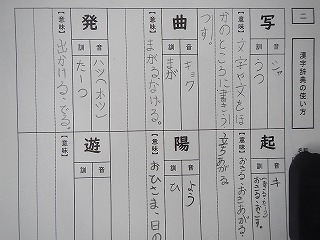 二
漢字辞典の使い方
写
音
シャ
訓
うつ
【意味】
文字や文をほ
かのところに書きう
つす。
曲
音
キョク
訓
まが
【意味】
まがる、なげる。
発
音
ハツ(ホツ)
訓
たーつ
【意味】
出かける・でる。
起
音
キ
訓
おこる・おこす。
【意味】
おきる・おきあがる・
立ちあがる
陽
音
よう
訓
ひ
【意味】
おひさま、日の
遊
音
訓
【意味】